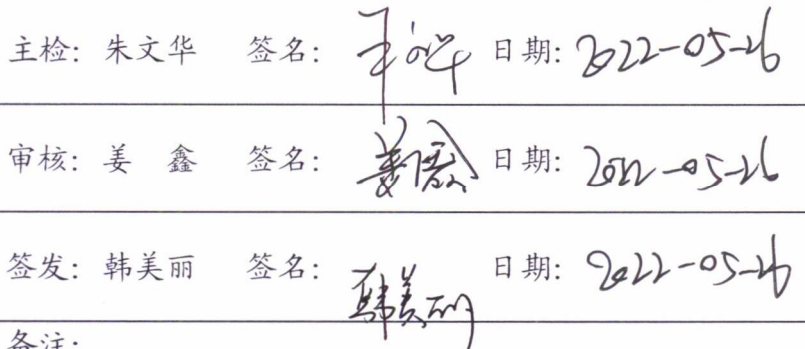 主检: 朱文华 签名: 朱文华 日期: 2022-05-26
审核: 姜 鑫 签名: 姜鑫 日期: 2022-05-26
签发: 韩美丽 签名: 韩美丽 日期: 2022-05-26
备注: